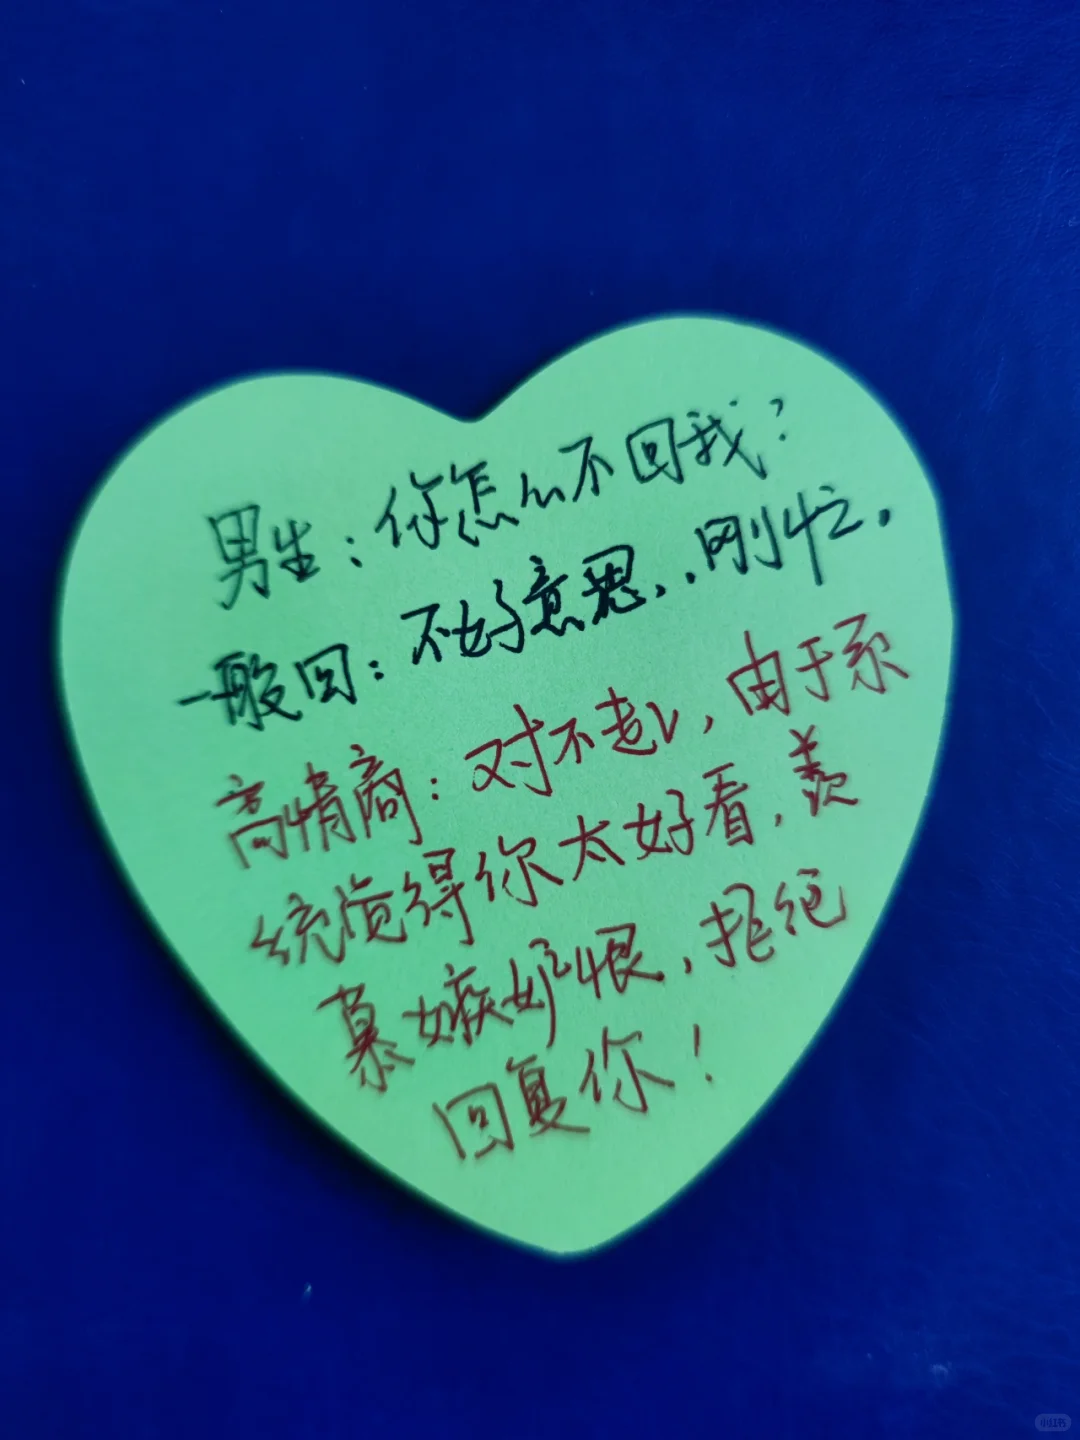 男生：你怎么不回我？
一般回：不好意思..刚忙.
高情商：对不起，由于系
统觉得你太好看，羡
慕嫉妒恨，拒绝
回复你！
小红书